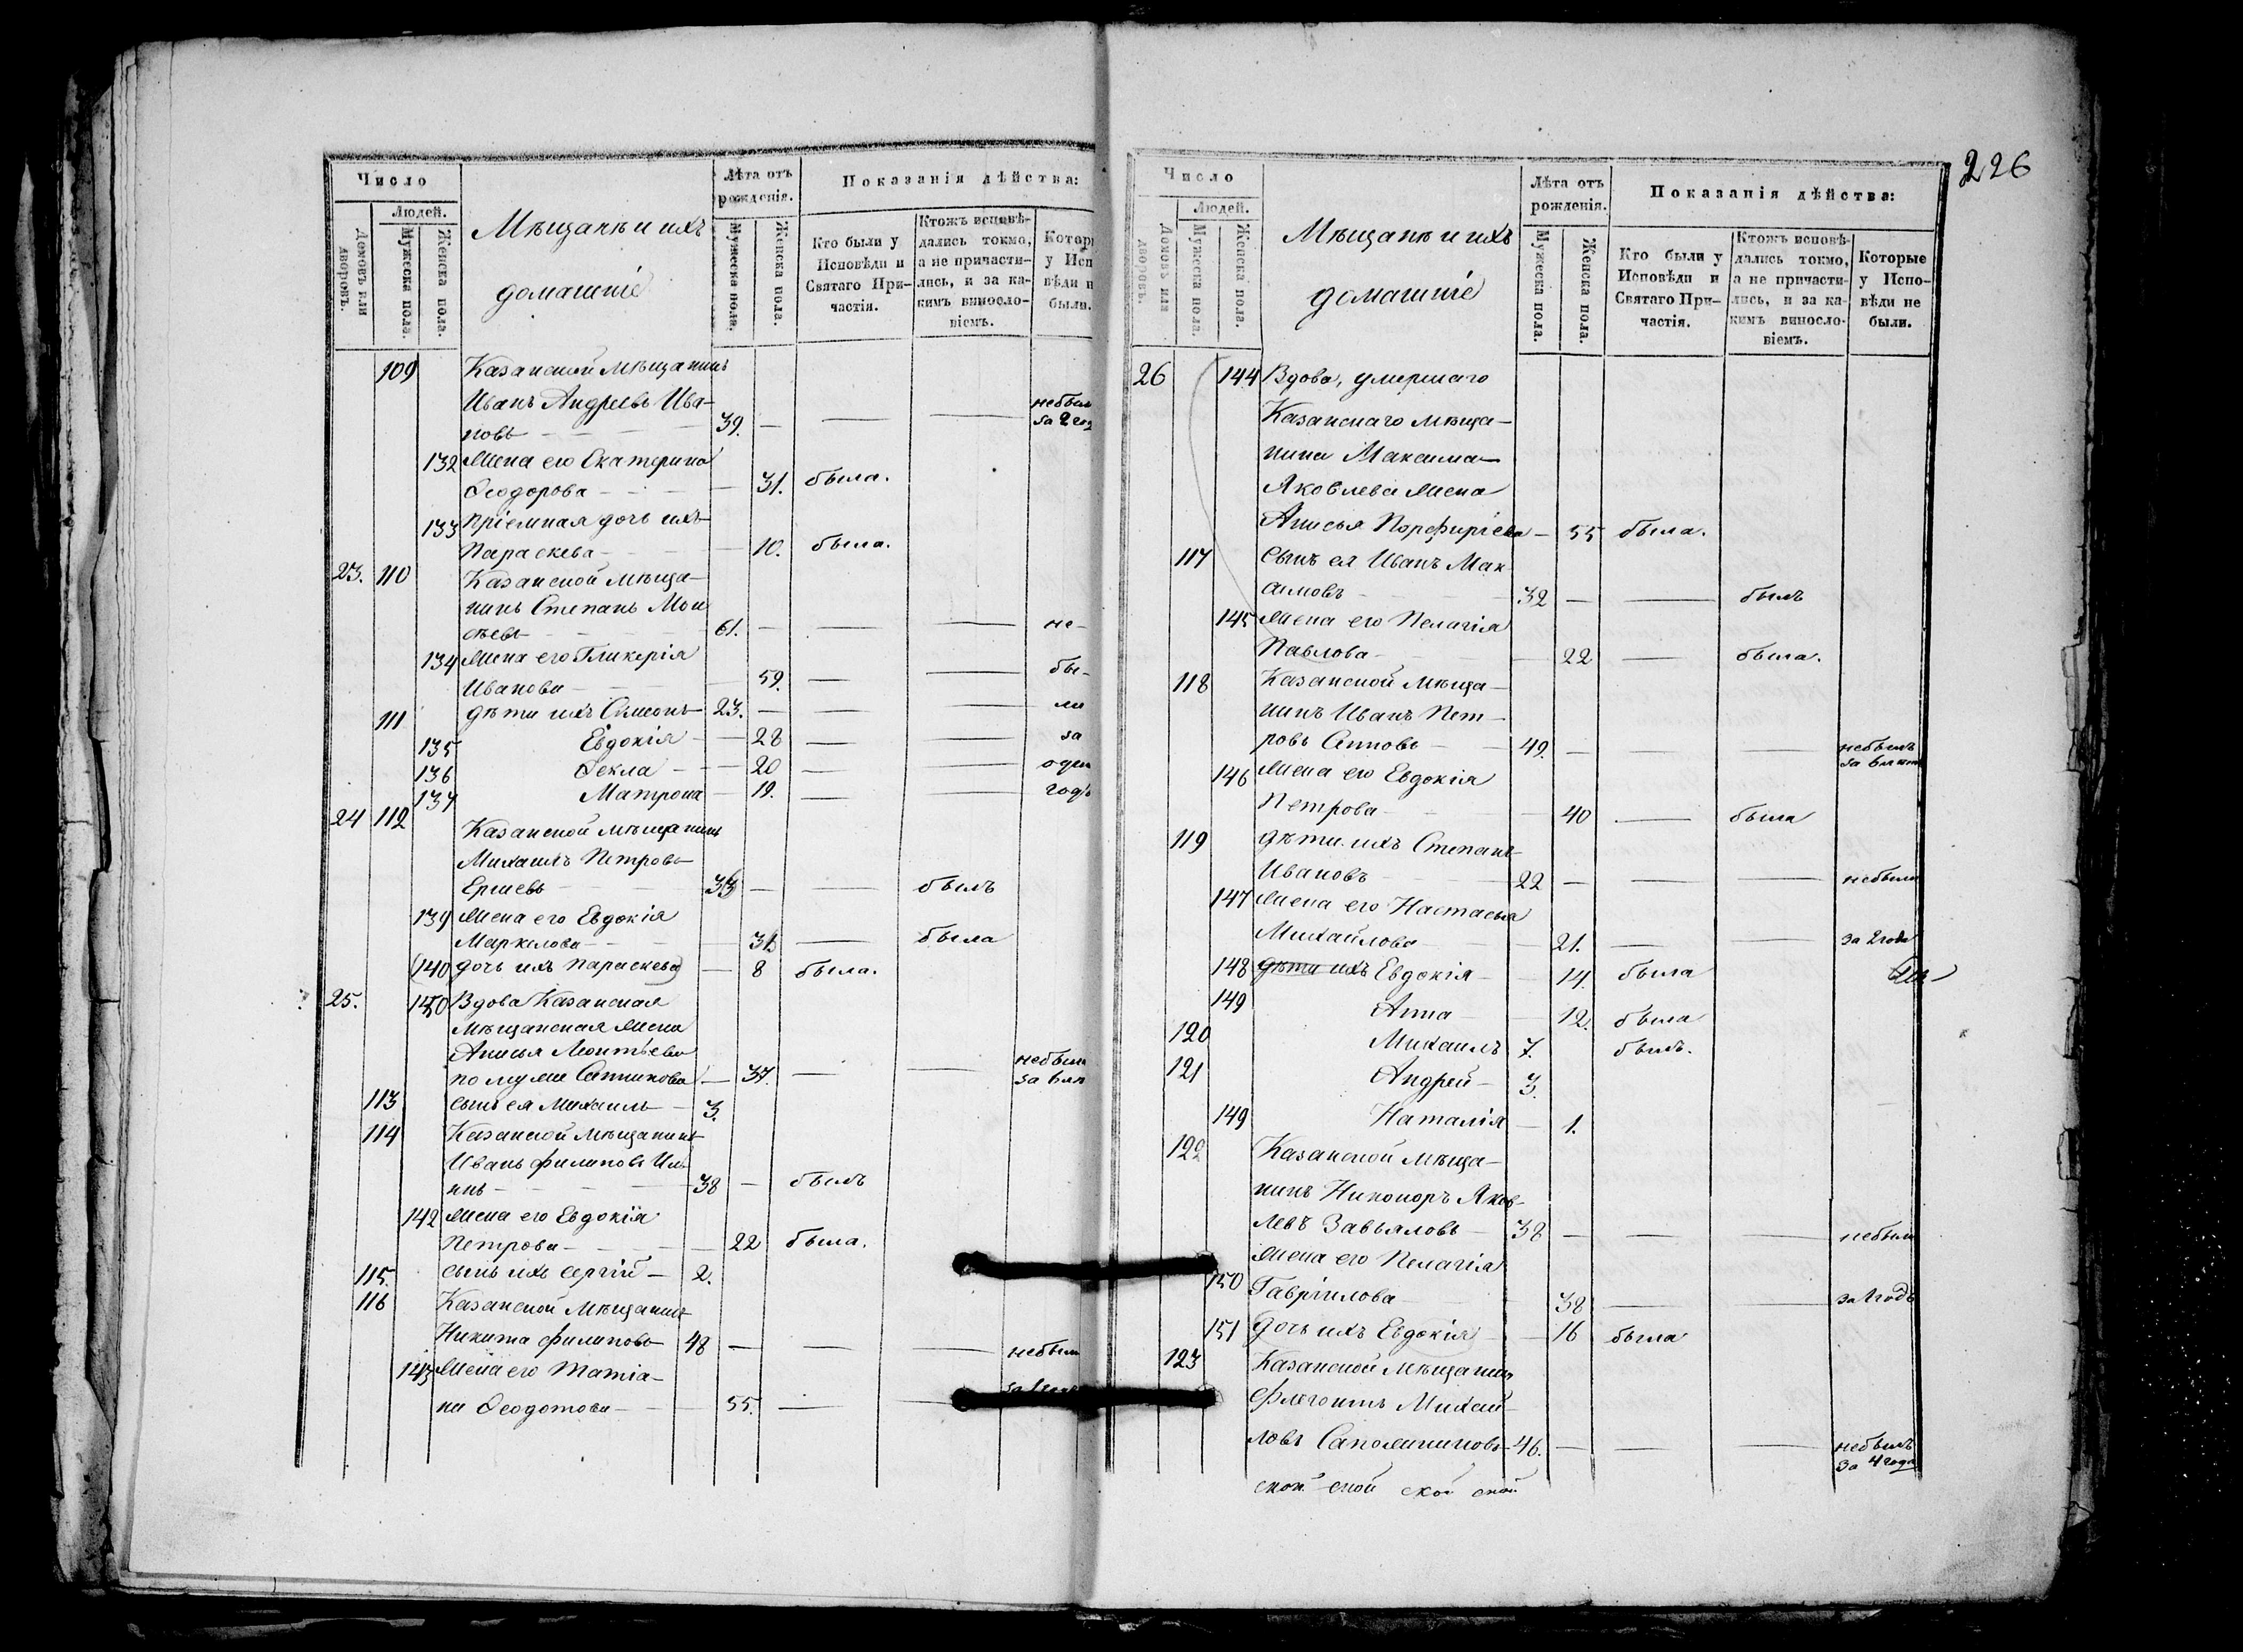 Число
Людей.
Домовъ или дворовъ.
Мужеска пола.
Женска пола.
Мѣщанъ и ихъ
домашніе
Лѣта отъ рожденія.
Мужеска пола.
Женска пола.
Показанія дѣйства:
Кто были у Исповѣди и Святаго Причастія.
Ктожъ исповѣдались токмо, а не причастились, и за какимъ винословіемъ.
Котор
у Исп
вѣди н
были.
109 Казанской мѣщанинъ
Иванъ Андреевъ Ива-
новъ 39. небыл
за 2 год
132 Жена его Екатерина
Ѳеодорова 31. была.
133 Пріемная дочь ихъ
Параскева 10. была.
23. 110 Казанской мѣща-
нинъ Степанъ Мои
сѣевъ 61. не-
134 Жена его Гликерія
Иванова 59. бы-
111 дѣти ихъ Симеонъ 23. ли
135 Евдокія 28 за
136 Ѳекла 20 один
137 Матрона 19. годъ
24 112 Казанской мѣщанинъ
Михаилъ Петровъ
Ершевъ 33 былъ
139 Жена его Евдокія
Маркелова 31. была
140 дочь ихъ Параскева 8 была.
25. 140 Вдова Казанская
мѣщанская жена
Анисья Леонтьева
по мужѣ Ситникова 37. небыла
за 6 лѣт
113 сынъ ея Михаилъ 3.
114 Казанской мѣщанинъ
Иванъ Филиповъ Иль-
инъ 38 былъ
142 Жена его Евдокія
Петрова 22 была.
115. сынъ ихъ Сергій 2.
116 Казанской мѣщанинъ
Никита Филиповъ 48 небыли
143 Жена его Татіа-
на Ѳеодотова 55.
226
Число
Людей.
Домовъ или дворовъ.
Мужеска пола.
Женска пола.
Мѣщанъ и ихъ
домашніе
Лѣта отъ рожденія.
Мужеска пола.
Женска пола.
Показанія дѣйства:
Кто были у Исповѣди и Святаго Причастія.
Ктожъ исповѣдались токмо, а не причастились, и за какимъ винословіемъ.
Которые у Исповѣди не были.
26 144 Вдова, умершаго
Казанскаго мѣща-
нина Максима
Яковлева жена
Анисья Порфиріева 55 была.
117 Сынъ ея Иванъ Мак
симовъ 32 былъ
145 Жена его Пелагія
Павлова 22 была.
118 Казанской мѣща-
нинъ Иванъ Пет-
ровъ 49. небылъ
146 Жена его Евдокія
Петрова 40 была
119 дѣти ихъ Степанъ
Ивановъ 22 небыли
147 Жена его Настасья
Михайлова 21. за 2 года
148 дѣти ихъ Евдокія 14. была
149 Анна 12. была
120 Михаилъ 7. былъ.
121 Андрей 3.
149 Наталія 1.
122 Казанской мѣща-
нинъ Никоноръ Яков-
левъ Завьяловъ 38 небыли
Жена его Пелагія
150 Гавріилова 38 за 1 годъ
151 дочь ихъ Евдокія 16 была
123 Казанской мѣщанинъ
Флегонтъ Михай-
ловъ Сапожниковъ 46. небылъ
за 4 года
ской ской ской ской